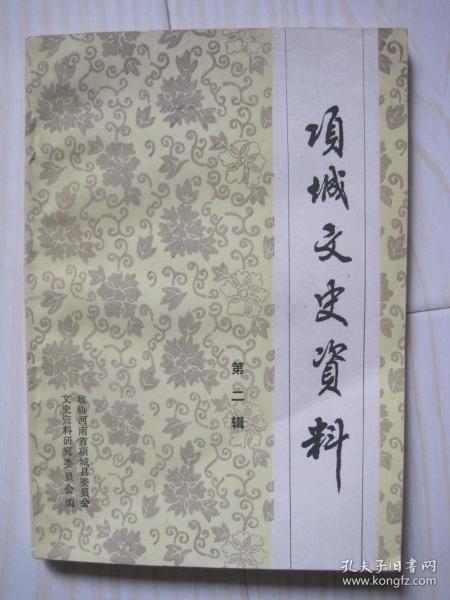 項城文史資料
第二辑
政协河南省项城县委员会
文史资料研究委员会编
孔夫子旧书网
www.kongfz.com